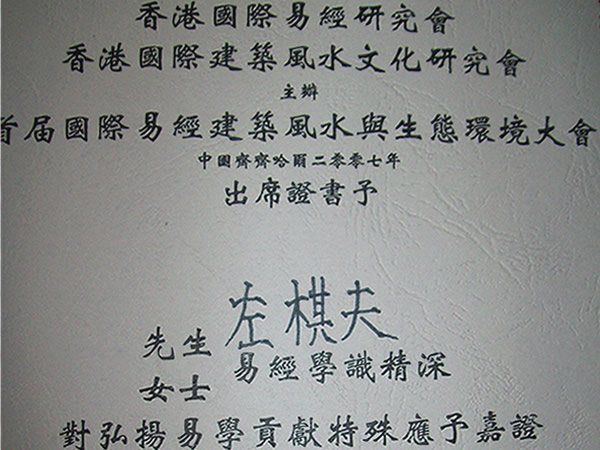 香港國際易經研究會
香港國際建築風水文化研究會
主辦
首届國際易經建築風水與生態環境大會
中國齊齊哈爾二零零七年
出席證書予
左棋夫
先生
女士
易經學識精深
對弘揚易學貢獻特殊應予嘉證